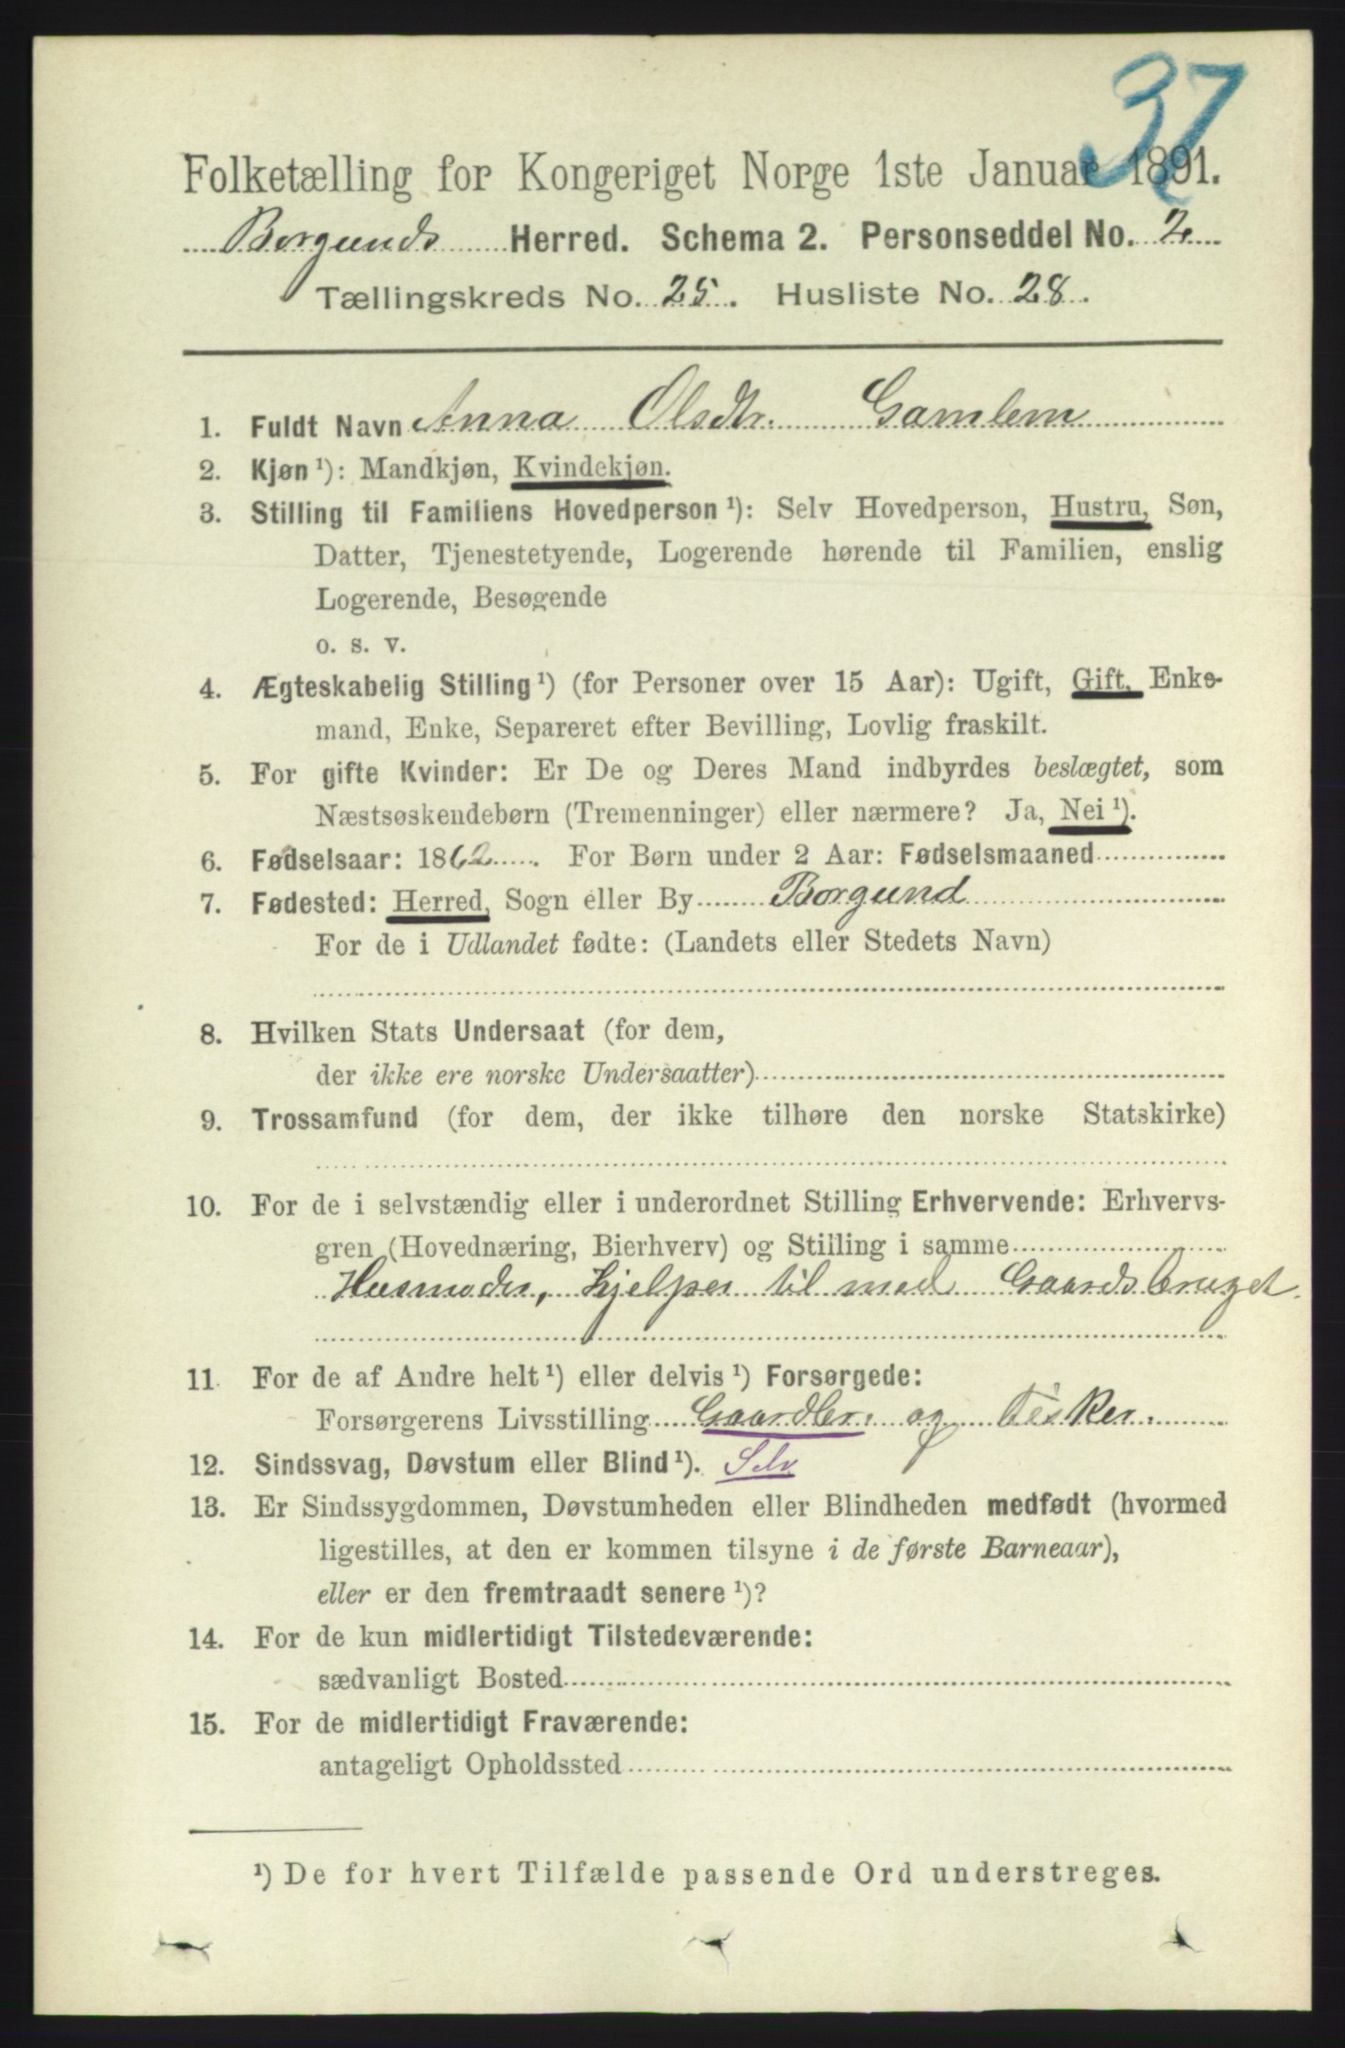 37
Folketælling for Kongeriget Norge 1ste Januar 1891.
Borgunds Herred. Schema 2. Personseddel No. 2
Tællingskreds No. 25. Husliste No. 28.
1. Fuldt Navn Anna Olsdtr. Gamlem
2. Kjøn ¹): Mandkjøn, Kvindekjøn.
3. Stilling til Familiens Hovedperson ¹): Selv Hovedperson, Hustru, Søn,
Datter, Tjenestetyende, Logerende hørende til Familien, enslig
Logerende, Besøgende
o. s. v.
4. Ægteskabelig Stilling ¹) (for Personer over 15 Aar): Ugift, Gift, Enke-
mand, Enke, Separeret efter Bevilling, Lovlig fraskilt.
5. For gifte Kvinder: Er De og Deres Mand indbyrdes beslægtet, som
Næstsøskendebørn (Tremenninger) eller nærmere? Ja, Nei ¹).
6. Fødselsaar: 1862. For Børn under 2 Aar: Fødselsmaaned
7. Fødested: Herred, Sogn eller By Borgund
For de i Udlandet fødte: (Landets eller Stedets Navn)
8. Hvilken Stats Undersaat (for dem,
der ikke ere norske Undersaatter)
9. Trossamfund (for dem, der ikke tilhøre den norske Statskirke)
10. For de i selvstændig eller i underordnet Stilling Erhvervende: Erhvervs-
gren (Hovednæring, Bierhverv) og Stilling i samme
Husmoder, hjelper til med Gaardsbruget.
11. For de af Andre helt ¹) eller delvis ¹) Forsørgede:
Forsørgerens Livsstilling Gaardbr. og Fisker.
12. Sindssvag, Døvstum eller Blind ¹). Selv
13. Er Sindssygdommen, Døvstumheden eller Blindheden medfødt (hvormed
ligestilles, at den er kommen tilsyne i de første Barneaar),
eller er den fremtraadt senere ¹)?
14. For de kun midlertidigt Tilstedeværende:
sædvanligt Bosted
15. For de midlertidigt Fraværende:
antageligt Opholdssted
¹) De for hvert Tilfælde passende Ord understreges.